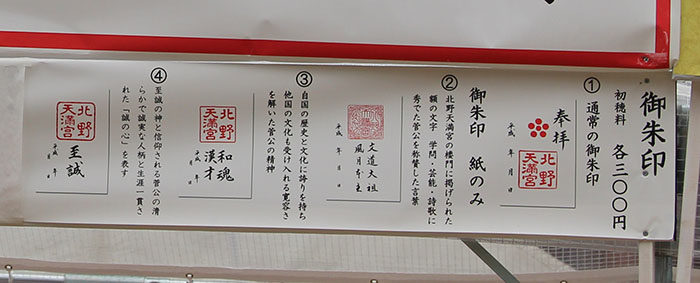 御朱印
初穂料 各三〇〇円
①通常の御朱印
奉拝
北野
天満宮
平成 年 月 日
御朱印 紙のみ
②北野天満宮の楼門に掲げられた
額の文字 学問・芸能・詩歌に
秀でた菅公を称賛した言葉
文道大祖
風月本主
平成 年 月 日
③自国の歴史と文化に誇りを持ち
他国の文化も受け入れる寛容さ
を解いた菅公の精神
和魂
漢才
北野
天満宮
平成 年 月 日
④至誠の神と信仰される菅公の清
らかで誠実な人柄と生涯一貫さ
れた「誠の心」を表す
北野
天満宮
至誠
平成 年 月 日